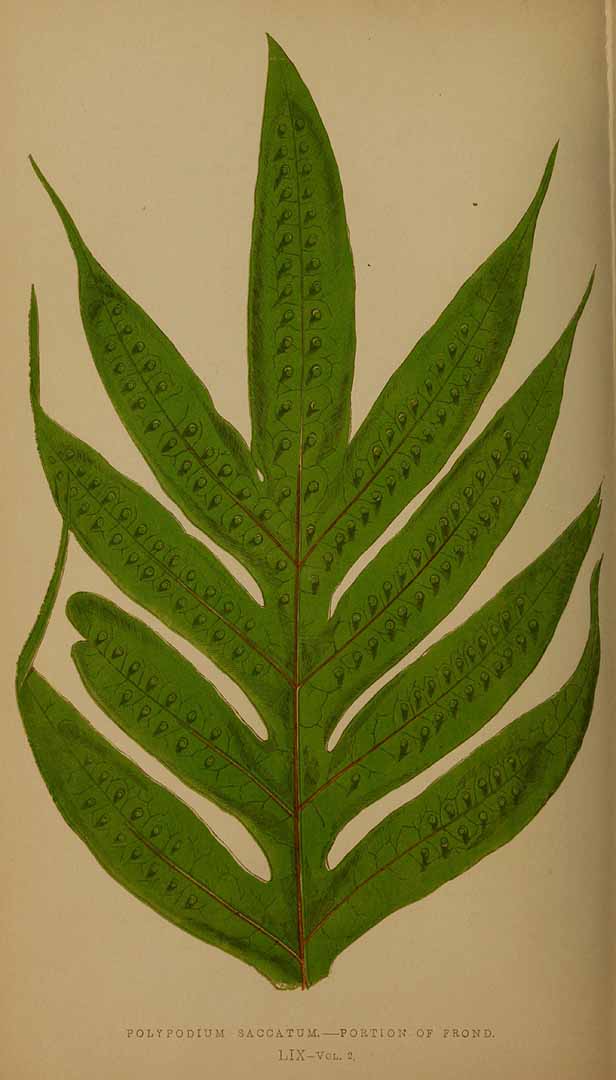 POLYPODIUM SACCATUM.—PORTION OF FROND.
LIX—VOL. 2.